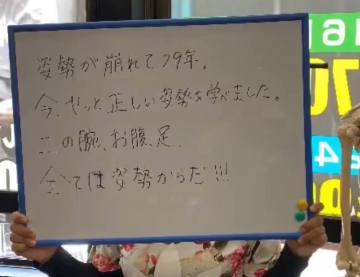 姿勢が崩れて79年。
今、やっと正しい姿勢を学べました。
この腕、お腹、足、
全ては姿勢からだ!!!
16
70
24